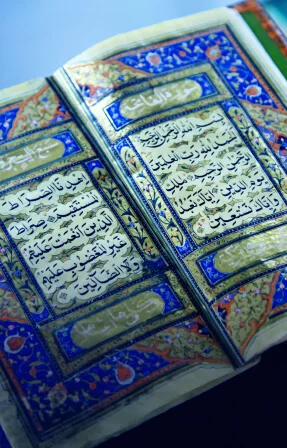 بسم الله الرحمن الرحيم
الحمد لله رب العالمين
الرحمن الرحيم مالك
يوم الدين إياك نعبد
وإياك نستعين
اهدنا الصراط
المستقيم صراط
الذين أنعمت عليهم
غير المغضوب عليهم
ولا الضالين